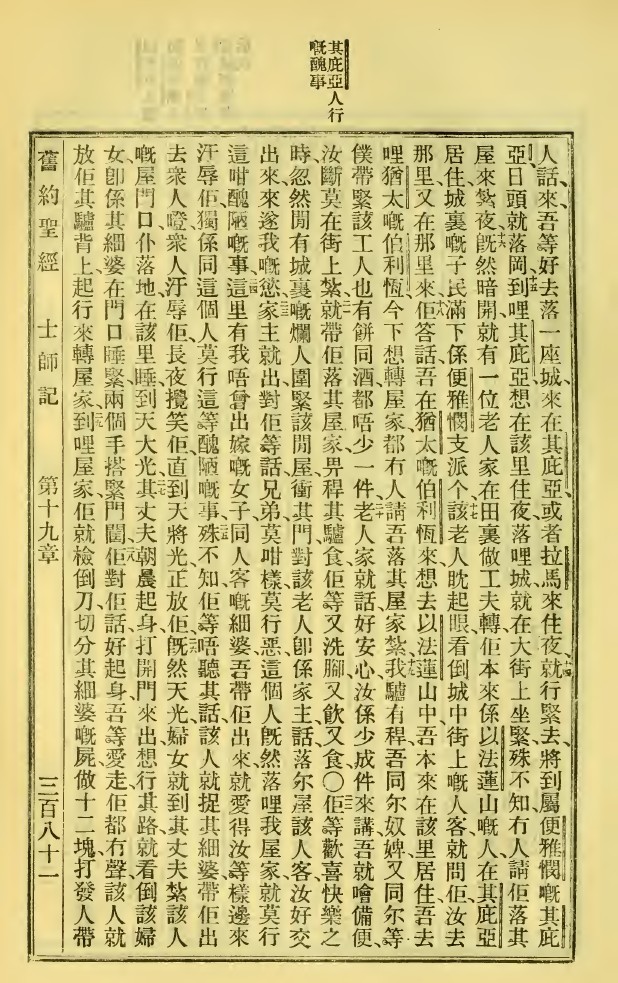 其庇亞人行
嘅醜事
人話來吾等好去落一座城來在其庇亞或者拉馬來住夜十四就行緊去將到屬便雅憫嘅其庇
亞日頭就落岡十五到哩其庇亞想在該里住夜落哩城就在大街上坐緊殊不知冇人請佢落其
屋來紮夜十六既然暗開就有一位老人家在田裏做工夫轉佢本來係以法蓮山嘅人在其庇亞
居住城裏嘅子民滿下係便雅憫支派个十七該老人眈起眼看倒城中街上嘅人客就問佢汝去
那里又在那里來十八佢答話吾在猶太嘅伯利恆來想去以法蓮山中吾本來在該里居住吾去
哩猶太嘅伯利恆今下想轉屋家都冇人請吾落其屋家紮十九我驢有稈吾同尔奴婢又同尔等
僕帶緊該工人也有餅同酒都唔少一件二十老人家就話好安心汝係少成件來講吾就噲備便
汝斷莫在街上紮二一就帶佢落其屋家畀稈其驢食佢等又洗腳又飲又食〇二二佢等歡喜快樂之
時忽然閒有城裏嘅爛人圍緊該間屋衝其門對該老人卽係家主話落尔屋該人客汝好交
出來來遂我嘅慾二三家主就出對佢等話兄弟莫咁樣莫行惡這個人既然落哩我屋家就莫行
這咁醜陋嘅事二四這里有我唔曾出嫁嘅女子同人客嘅細婆吾帶佢出來就愛得汝等樣邊來
汙辱佢獨係同這個人莫行這等醜陋嘅事二五殊不知佢等唔聽其話該人就捉其細婆帶佢出
去衆人噔衆人汙辱佢長夜攪笑佢直到天將光正放佢二六既然天光婦女就到其丈夫紮該人
嘅屋門口仆落地在該里睡到天大光二七其丈夫朝晨起身打開門來出想行其路就看倒該婦
女卽係其細婆在門口睡緊兩個手搭緊門閫二八佢對佢話好起身吾等愛走佢都冇聲該人就
放佢其驢背上起行來轉屋家二九到哩屋家佢就檢倒刀切分其細婆嘅屍做十二塊打發人帶
舊約聖經 士師記 第十九章 三百八十一